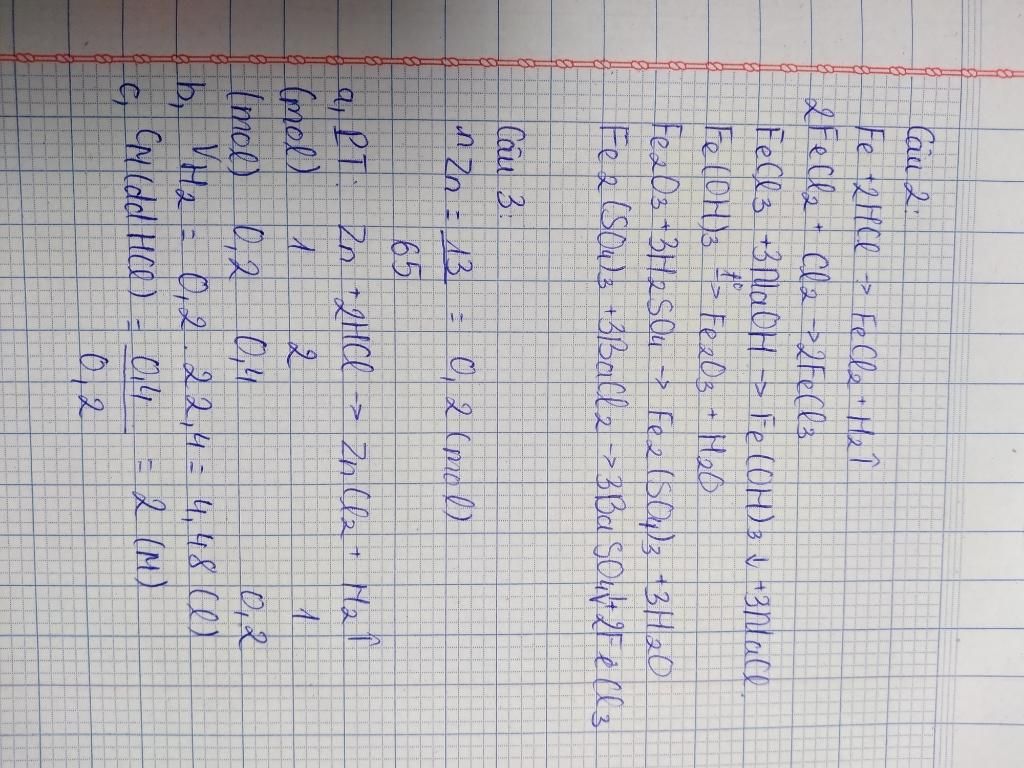 Câu 2:
Fe + 2HCl -> FeCl2 + H2↑
2FeCl2 + Cl2 -> 2FeCl3
FeCl3 + 3NaOH -> Fe(OH)3 ↓ + 3NaCl.
Fe(OH)3 t° => Fe2O3 + H2O
Fe2O3 + 3H2SO4 -> Fe2(SO4)3 + 3H2O
Fe2(SO4)3 + 3BaCl2 -> 3BaSO4↓ + 2FeCl3
Câu 3:
n Zn = 13 = 0,2 (mol)
65
a, PT: Zn + 2HCl -> ZnCl2 + H2↑
(mol) 1 2 1
(mol) 0,2 0,4 0,2
b, VH2 = 0,2 . 22,4 = 4,48 (l)
c, CM(ddHCl) = 0,4 = 2 (M)
0,2